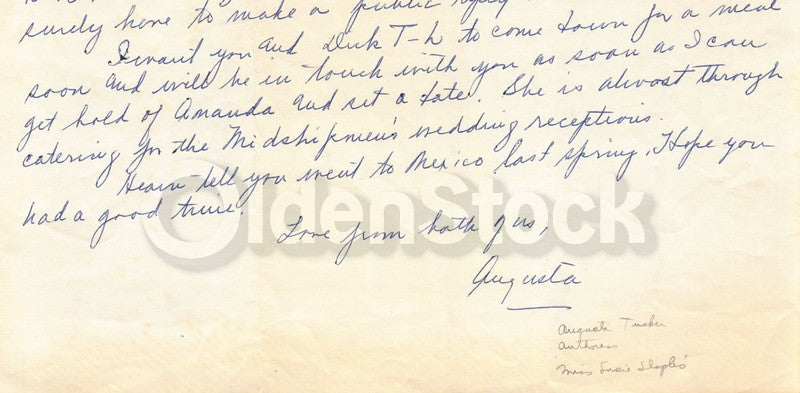 surely have to make a public
I want you and Dick T-L to come down for a meal
soon and will be in touch with you as soon as I can
get hold of Amanda and set a date. She is almost through
catering for the Midshipmen's wedding receptions.
Hear tell you went to Mexico last spring. Hope you
had a good time.
OldenStock
Love from both of us,
Augusta
Augusta Tucker
Authoress
"Miss Susie Slagle's"